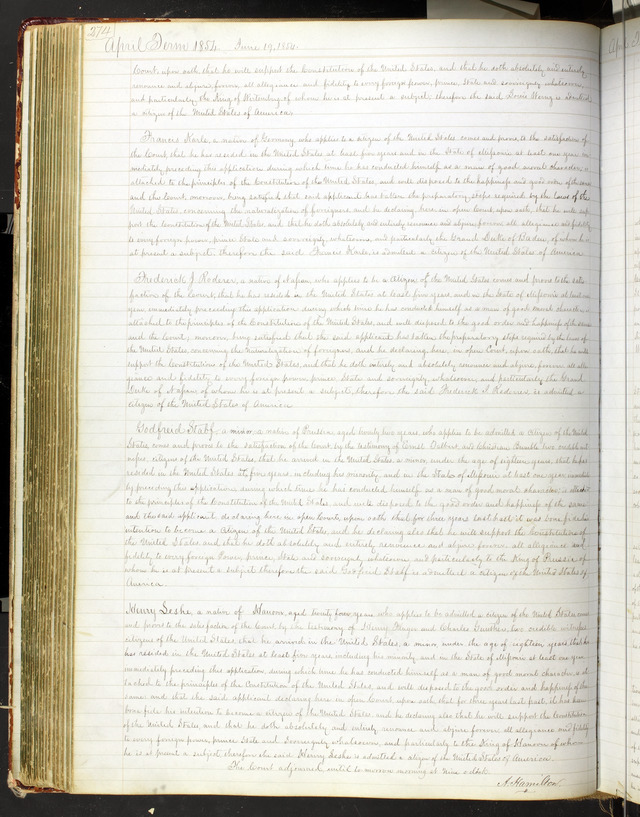 274
April Term 1854 June 19, 1854.
Court, upon oath, that he will support the Constitution of the United States, and that he doth absolutely and entirely
renounce and abjure forever all allegiance and fidelity to every foreign power, prince, State and sovereignty whatsoever,
and particularly the King of Wirtemberg of whom he is at present a subject; therefore the said Louis is admitted
a citizen of the United States of America.
Frances Karle, a native of Germany, who applies to a citizen of the United States comes and proves to the satisfaction of
the Court that he has resided in the United States at least five years and in the State of Missouri at least one year im-
mediately preceding this application, during which time he has conducted himself as a man of good moral character,
attached to the principles of the Constitution of the United States, and well disposed to the happiness and good order of the same
and the Court, moreover, being satisfied that said applicant has taken the preparatory steps required by the laws of the
United States concerning the naturalization of foreigners and he declaring here, in open Court, upon oath, that he will sup-
port the Constitution of the United States, and that he doth absolutely and entirely renounce and abjure forever all allegiance and fidelity
to every foreign power, prince State and sovereignty whatsoever, and particularly the Grand Duke of Baden, of whom he is
at present a subject; therefore the said Frances Karle, is admitted a citizen of the United States of America.
Frederick J. Roderer, a native of Nassau, who applies to be a citizen of the United States comes and proves to the satis-
faction of the Court, that he has resided in the United States at least five years and in the State of Missouri at least one
year immediately preceding this application, during which time he has conducted himself as a man of good moral character,
attached to the principles of the Constitution of the United States, and well disposed to the good order and happiness of the same
and the Court, moreover, being satisfied that the said applicant has taken the preparatory steps required by the laws of
the United States, concerning the Naturalization of foreigners, and he declaring, here, in open Court, upon oath, that he will
support the Constitution of the United States, and that he doth entirely and absolutely renounce and abjure, forever all alle-
giance and fidelity to every foreign power, prince, State and sovereignty, whatsoever, and particularly the Grand
Duke of Nassau of whom he is at present a subject, therefore the said Frederick J. Roderer is admitted a
citizen of the United States of America
Godfreid Stabf, a minor, a native of Prussia, aged twenty two years who applies to be admitted a citizen of the United
States, comes and proves to the satisfaction of the Court by the testimony of and Christian two credible wit-
nesses, citizens of the United States, that he arrived in the United States a minor, under the age of eighteen years, that he has
resided in the United States five years including his minority and in the State of Missouri at least one year immediate-
ly preceding this application during which time he has conducted himself as a man of good moral character, attached
to the principles of the Constitution of the United States, and well disposed to the good order and happiness of the same
and the said applicant declaring here in open Court, upon oath that for three years last past it was bona fide his
intention to become a citizen of the United States, and he declaring also that he will support the Constitution of
the United States and that he doth absolutely and entirely renounce and abjure forever, all allegiance and
fidelity to every foreign Power, prince, State and sovereignty whatsoever and particularly to the King of Prussia of
whom he is at present a subject therefore the said Godfreid Stabf is admitted a citizen of the United States of
America.
Henry Seshe, a native of Hanover, aged twenty four years who applies to be admitted a citizen of the United States, comes
and proves to the satisfaction of the Court by the testimony of Henry and Charles two credible witnesses
citizens of the United States, that he arrived in the United States, a minor under the age of eighteen years, that he
has resided in the United States at least five years including his minority and in the State of Missouri at least one year
immediately preceding this application during which time he has conducted himself as a man of good moral character, at-
tached to the principles of the Constitution of the United States, and well disposed to the good order and happiness of the
same and that the said applicant declaring here in open Court, upon oath, that for three years last past, it has been
bona fide his intention to become a citizen of the United States, and he declaring also that he will support the Constitution
of the United States and that he doth absolutely and entirely renounce and abjure forever all allegiance and fidelity
to every foreign power, prince State and Sovereignty whatsoever, and particularly to the King of Hanover of whom
he is at present a subject therefore the said Henry Seshe is admitted a citizen of the United States of America.
The Court adjourned until to morrow morning at nine oclock.
A. Hamilton